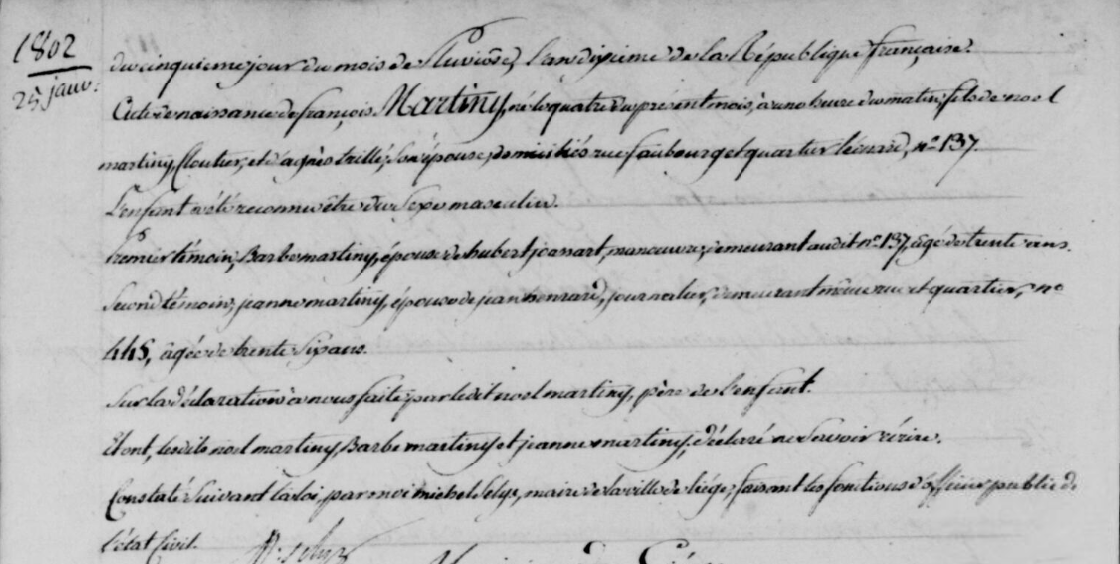 1802
25 janv:
du cinquieme jour du mois de Pluviôse, l'an dixieme de la République française.
Acte de naissance de françois Martiny, né le quatre du présent mois, à une heure du matin, fils de noel
martiny, Cloutier, et d'agnès trillé, son épouse, domiciliés rue faubourg et quartier léonard, n.° 137.
L'enfant a été reconnu être du Sexe masculin.
Premier témoin, Barbe martiny, épouse de hubert joanart, manœuvre, demeurant audit n.° 137, âgé de trente ans.
Second témoin, jeanne martiny, épouse de jean henrard, journalier, demeurant même rue et quartier, n.°
445, âgée de trente Six ans.
Sur la déclaration à nous faite par ledit noel martiny, père de l'enfant.
Et ont, lesdits noel martiny, Barbe martiny et jeanne martiny, déclaré ne Savoir écrire.
Constaté Suivant la loi, par moi michel Selys, maire de la ville de liége, faisant les fonctions d'officier public de
l'état Civil.
M. Selys